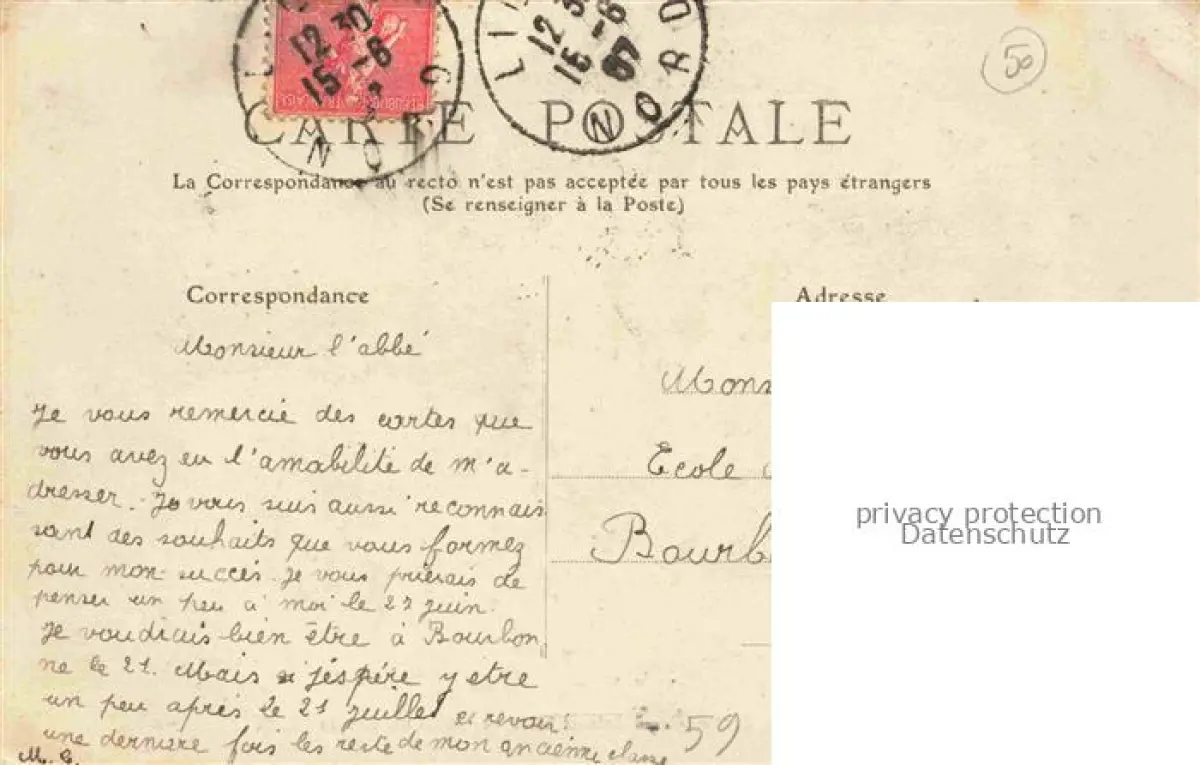 12 30
15-6
NO
12 3
15-6
07
LI
NORD
50
CARTE POSTALE
La Correspondance au recto n'est pas acceptée par tous les pays étrangers
(Se renseigner à la Poste)
Correspondance
Monsieur l'abbé
Je vous remercie des cartes que
vous avez eu l'amabilité de m'a-
dresser. Je vous suis aussi reconnais
sant des souhaits que vous formez
pour mon succès. Je vous prierais de
penser un peu à moi le 27 juin.
Je voudrais bien être à Bourbon
ne le 21. Mais j'éspére y etre
un peu après le 21 juillet et revoir
une dernière fois les reste de mon ancienne classe
M. C.
Adresse
Mons
Ecole
Bourb
59
privacy protection
Datenschutz